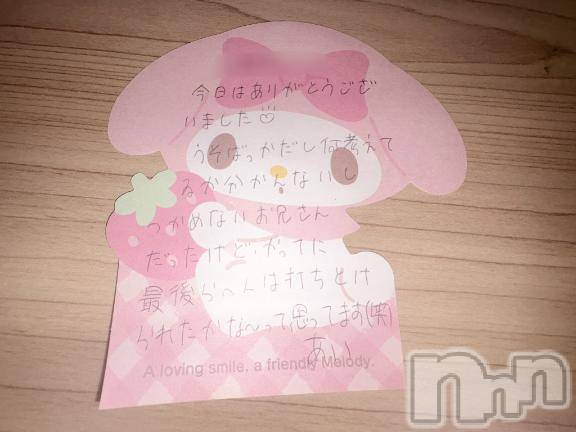 今日はありがとうござ
いました♡
うそばっかだし何考えて
るか分かんないし
つかめないお兄さん
だったけどかってに
最後らへんは打ちとけ
られたかな〜って思ってます(笑)
あい
A loving smile, a friendly Melody.
nnn